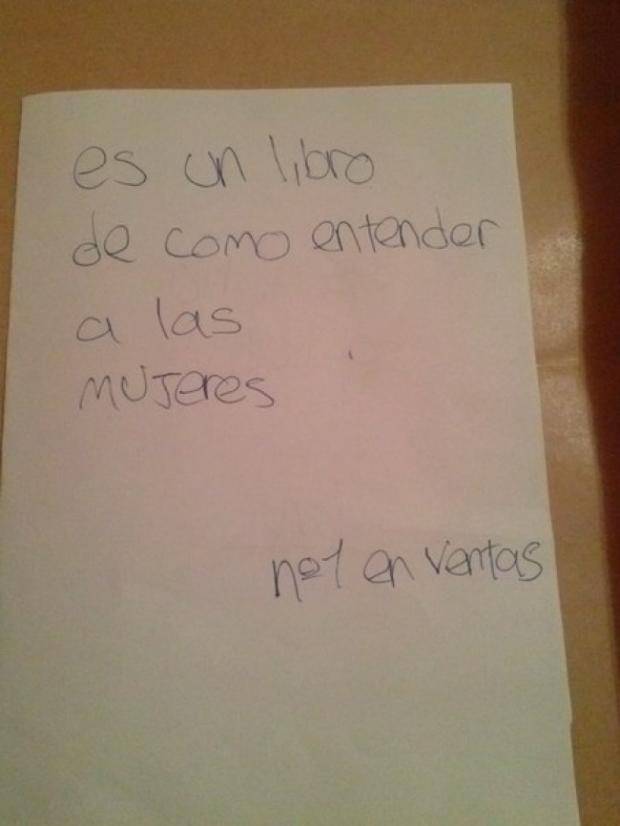 es un libro
de como entender
a las
mujeres
nº1 en ventas